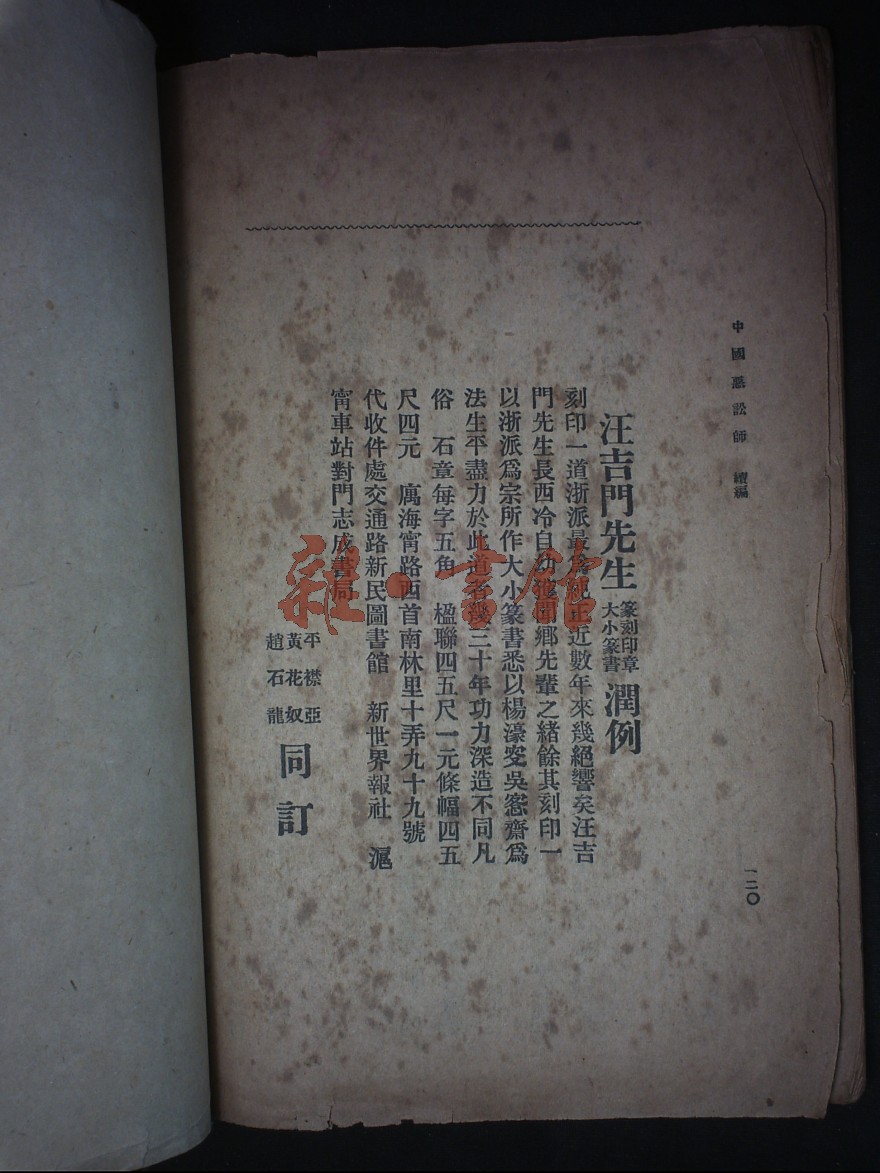 中國惡訟師 續編
一二〇
汪吉門先生 篆刻印章 大小篆書 潤例
刻印一道浙派最爲純正近數年來幾絕響矣汪吉
門先生長西冷自幼獲聞鄉先輩之緒餘其刻印一
以浙派爲宗所作大小篆書悉以楊濠叟吳愙齋爲
法生平盡力於此道者幾三十年功力深造不同凡
俗 石章每字五角 楹聯四五尺一元條幅四五
尺四元 寓海甯路西首南林里十弄九十九號
代收件處交通路新民圖書館 新世界報社 滬
甯車站對門志成書局
平襟亞
黃花奴
趙石龍
同訂
雜·書館